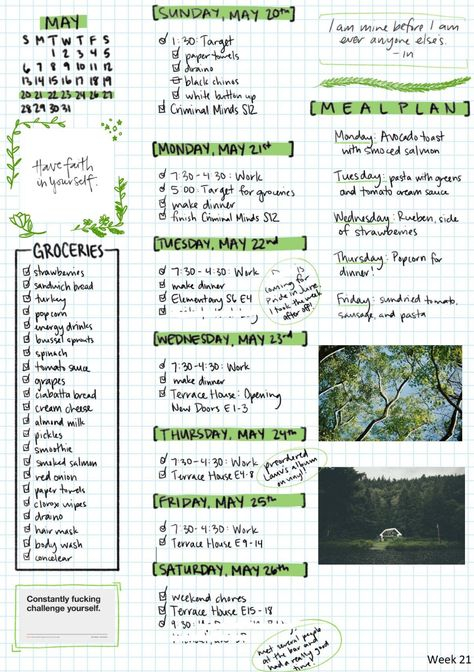 MAY
S M T W T F S
1 2 3 4 5
6 7 8 9 10 11 12
13 14 15 16 17 18 19
20 21 22 23 24 25 26
28 29 30 31
Have faith
in yourself.
GROCERIES
strawberries
sandwich bread
turkey
popcorn
energy drinks
brussel sprouts
spinach
tomato sauce
grapes
ciabatta bread
cream cheese
almond milk
pickles
smoothie
smoked salmon
red onion
paper towels
clorox wipes
draino
hair mask
body wash
concelear
Constantly fucking
challenge yourself.
[SUNDAY, MAY 20th]
1:30: Target
paper towels
draino
black chinos
white button up
Criminal Minds S12
[MONDAY, MAY 21st]
7:30-4:30: Work
5:00: Target for groceries
make dinner
finish Criminal Minds S12
[TUESDAY, MAY 22nd]
7:30-4:30: Work
make dinner
Elementary S6 E4
is
coming for
Pride in June,
I took the week
after off!!
[WEDNESDAY, MAY 23rd]
7:30-4:30: Work
make dinner
Terrace House: Opening
New Doors E1-3
[THURSDAY, MAY 24th]
7:30-4:30: Work
Terrace House E4-8
preordered
Lauv's album
on vinyl!
[FRIDAY, MAY 25th]
7:30-4:30: Work
Terrace House E9-14
[SATURDAY, MAY 26th]
weekend chores
Terrace House E15-18
9:30:
met several people
at the bar and
had a really good
time!
I am mine before I am
ever anyone else's.
-in
[MEAL PLAN]
Monday: Avocado toast
with smoced salmon
Tuesday: pasta with greens
and tomato cream sauce
Wednesday: Rueben, side
of strawberries
Thursday: Popcorn for
dinner!
Friday: sundried tomato,
sausage, and pasta
Week 21